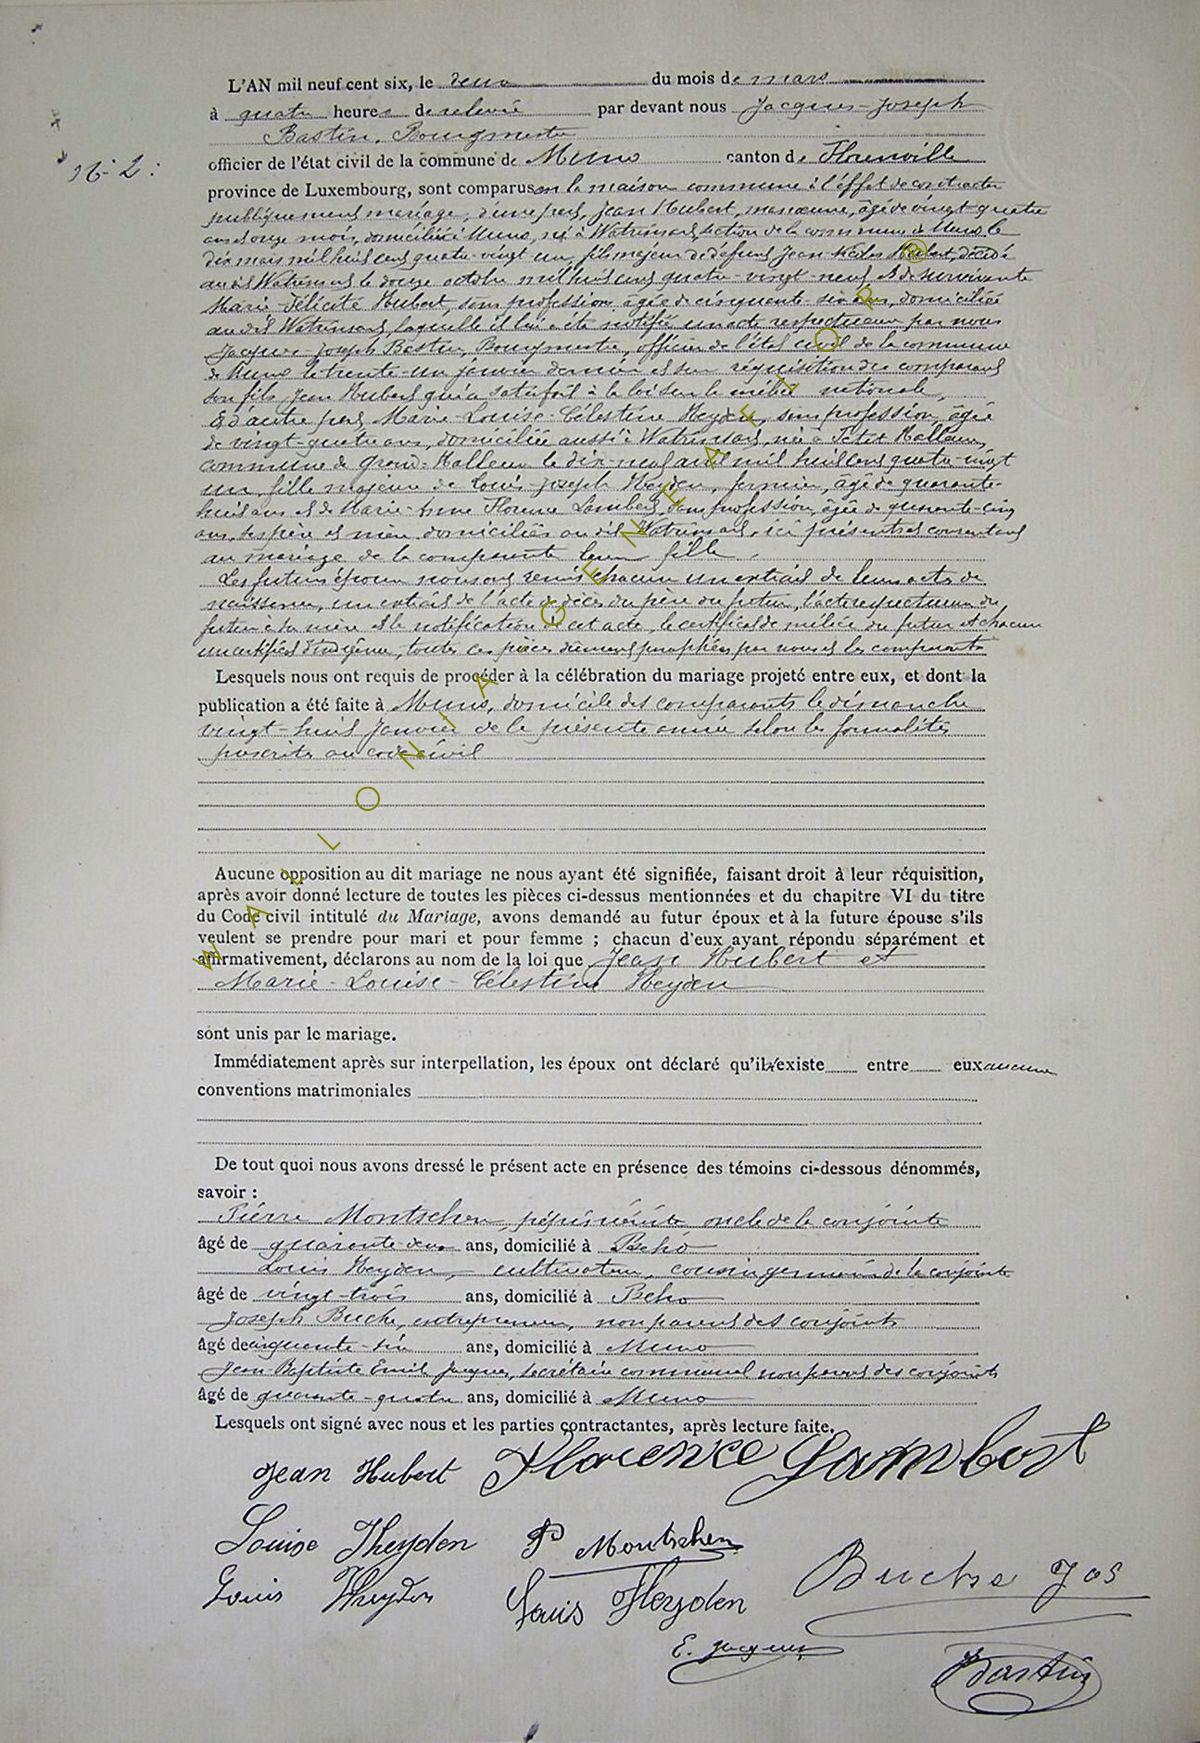 L'AN mil neuf cent six, le deux du mois de mars
à quatre heures de relevée par devant nous Jacques-Joseph
Bastin, Bourgmestre
N°-2:
officier de l'état civil de la commune de Muno canton de Florenville
province de Luxembourg, sont comparus en la maison commune à l'effet de contracter
publiquement mariage, d'une part, Jean Hubert, manœuvre, âgé de vingt quatre
ans onze mois, domicilié à Muno, né à Watrinsart, section de la commune de Muno le
dix mars mil huit cent quatre-vingt un, fils majeur de défunt Jean Nicolas Hubert, décédé
au dit Watrinsart le douze octobre mil huit cent quatre-vingt-neuf et de survivante
Marie-Félicité Hubert, sans profession, âgée de cinquante-six ans, domiciliée
au dit Watrinsart, laquelle il lui a été notifié un acte respectueux par nous
Jacques-Joseph Bastin, Bourgmestre, officier de l'état civil de la commune
de Muno le trente-un janvier dernier et sur réquisition du comparant
son fils, Jean Hubert qui a satisfait à la loi sur la milice nationale,
Et d'autre part Marie-Louise-Célestine Heyden, sans profession, âgée
de vingt-quatre ans, domiciliée aussi à Watrinsart, née à Petit Halleux,
commune de Grand-Halleux le dix-neuf avril mil huit cent quatre-vingt
un, fille majeure de Louis Joseph Heyden, fermier, âgé de quarante-
huit ans et de Marie-Anne Florence Lambert, sans profession, âgée de quarante-cinq
ans, ses père et mère domiciliés au dit Watrinsart, ici présents et consentant
au mariage de la comparante leur fille.
Les futurs époux nous ont remis chacun un extrait de leurs actes de
naissance, un extrait de l'acte de décès du père du futur, l'acte respectueux du
futur à sa mère et la notification de cet acte, le certificat de milice du futur et chacun
un certificat d'indigène, toutes ces pièces dûment paraphées par nous et les comparants
Lesquels nous ont requis de procéder à la célébration du mariage projeté entre eux, et dont la
publication a été faite à Muno, domicile des comparants le dimanche
vingt-huit Janvier de la présente année selon les formalités
prescrites au code civil
Aucune opposition au dit mariage ne nous ayant été signifiée, faisant droit à leur réquisition,
après avoir donné lecture de toutes les pièces ci-dessus mentionnées et du chapitre VI du titre
du Code civil intitulé du Mariage, avons demandé au futur époux et à la future épouse s'ils
veulent se prendre pour mari et pour femme ; chacun d'eux ayant répondu séparément et
affirmativement, déclarons au nom de la loi que Jean Hubert et
Marie-Louise-Célestine Heyden
sont unis par le mariage.
Immédiatement après sur interpellation, les époux ont déclaré qu'il n'existe entre eux aucune
conventions matrimoniales
De tout quoi nous avons dressé le présent acte en présence des témoins ci-dessous dénommés,
savoir :
Pierre Montschen, pépiniériste oncle de la conjointe
âgé de quarante-deux ans, domicilié à Beho
Louis Heyden, cultivateur, cousin germain de la conjointe
âgé de vingt-trois ans, domicilié à Beho
Joseph Buche, entrepreneur, non parent des conjoints
âgé de cinquante-six ans, domicilié à Muno
Jean-Baptiste Emile Jacques, secrétaire communal non parent des conjoints
âgé de quarante-quatre ans, domicilié à Muno
Lesquels ont signé avec nous et les parties contractantes, après lecture faite.
Jean Hubert Florence Lambert
Louise Heyden P Montschen
Louis Heyden Louis Heyden Buche Jos
E. Jacques
Bastin
WALLONIA GENEALOR®